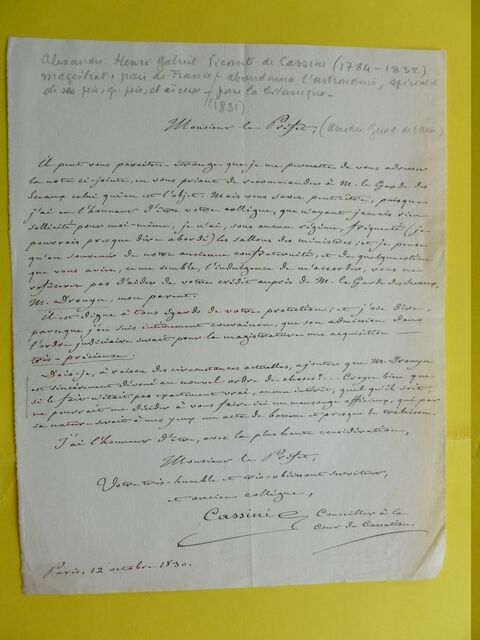 Alexandre Henri Gabriel Vicomte de Cassini (1784-1832)
magistrat, pair de France, abandonna l'astronomie, spécialité
de ses père, gd père, et aïeux - pour la botanique -
(1831)
Monsieur le Préfet,
Il peut vous paraître étrange que je me permette de vous adresser
la note ci-jointe, en vous priant de recommander à M. le Garde des
Sceaux celui qui en est l'objet. Mais vous savez peut-être, puisque
j'ai eu l'honneur d'être votre collègue, que n'ayant jamais rien
sollicité pour moi-même, je n'ai, sous aucun régime, fréquenté (je
pourrais presque dire abordé) les sallons des ministres; et je pense
qu'en souvenir de notre ancienne confraternité, et de quelque estime
que vous aviez, ce me semble, l'indulgence de m'accorder, vous ne
refuserez pas d'aider de votre crédit auprès de M. le Garde des sceaux,
M. Drouyn, mon parent.
Il est digne à tous égards de votre protection; et j'ose dire,
parceque j'en suis intimement convaincu, que son admission dans
l'ordre judiciaire serait pour la magistrature une acquisition
très-précieuse.
Dois-je, à raison des circonstances actuelles, ajouter que M. Drouyn
est sincèrement dévoué au nouvel ordre de choses?... Croyez bien que
si le fait n'était pas exactement vrai, aucun intérêt, quel qu'il soit,
ne pourrait me décider à vous faire ici un mensonge officieux, qui par
sa nature serait à mes yeux un acte de bassesse et presque de trahison.
J'ai l'honneur d'être, avec la plus haute considération,
Monsieur le Préfet,
Votre très-humble et très-obéissant serviteur,
et ancien collègue,
Cassini
Conseiller à la
Cour de Cassation.
Paris, 12 octobre 1830.